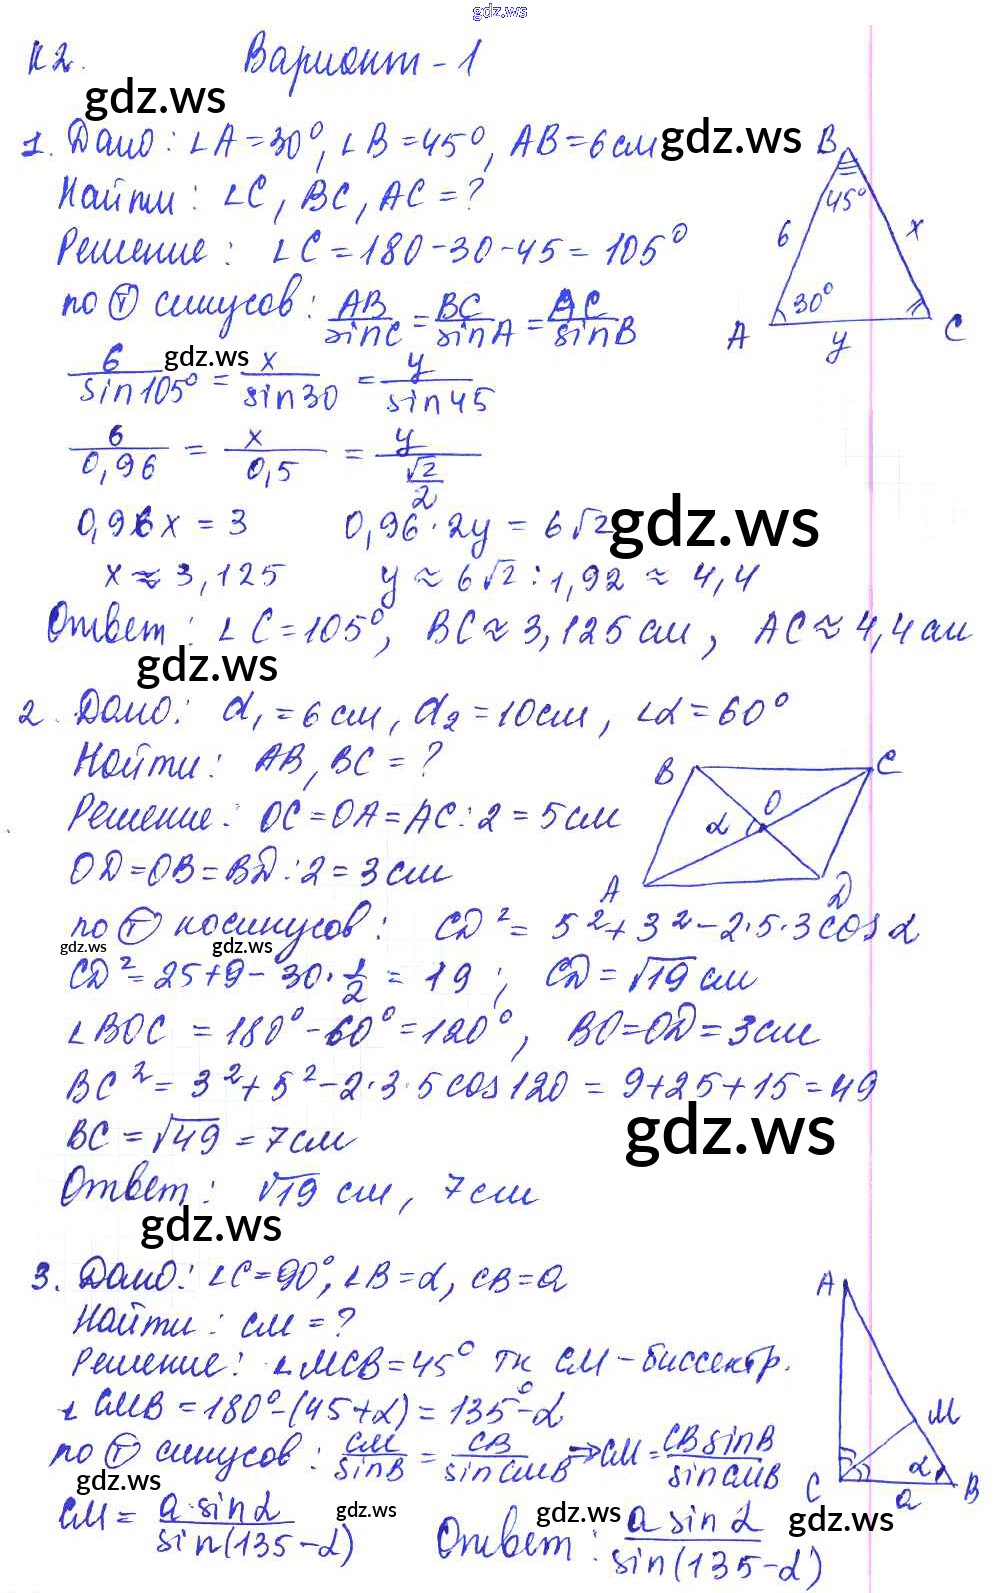 gdz.ws
К2. Вариант - 1
gdz.ws
1. Дано: ∠A = 30°, ∠B = 45°, AB = 6 см gdz.ws
Найти: ∠C, BC, AC = ?
Решение: ∠C = 180 - 30 - 45 = 105°
по Ⓣ синусов: AB/sinC = BC/sinA = AC/sinB
B 45° 6 x 30° A y C
6/sin105° = x/sin30 = y/sin45
gdz.ws
6/0,96 = x/0,5 = y/(√2/2)
0,96x = 3 0,96·2y = 6√2 gdz.ws
x ≈ 3,125 y ≈ 6√2 : 1,92 ≈ 4,4
Ответ: ∠C = 105°, BC ≈ 3,125 см, AC ≈ 4,4 см
gdz.ws
2. Дано: d₁ = 6 см, d₂ = 10 см, ∠α = 60°
Найти: AB, BC = ?
Решение: OC = OA = AC : 2 = 5 см
B C O α A D
OD = OB = BD : 2 = 3 см
по Ⓣ косинусов: CD² = 5² + 3² - 2·5·3 cos α
gdz.ws gdz.ws
CD² = 25 + 9 - 30·1/2 = 19; CD = √19 см
∠BOC = 180° - 60° = 120°, BO = OD = 3 см
BC² = 3² + 5² - 2·3·5 cos 120 = 9 + 25 + 15 = 49
BC = √49 = 7 см gdz.ws
Ответ: √19 см, 7 см
gdz.ws
3. Дано: ∠C = 90°, ∠B = α, CB = a
Найти: CM = ?
Решение: ∠MCB = 45° тк CM - биссектр.
A M C α B a
∠CMB = 180° - (45 + α) = 135° - α
по Ⓣ синусов: CM/sinB = CB/sinCMB ⇒ CM = CB sinB/sinCMB
gdz.ws
CM = a·sin α/sin(135 - α) Ответ: a sin α/sin(135 - α)
gdz.ws gdz.ws gdz.ws